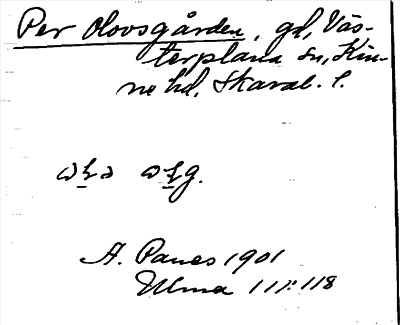 Per Olovsgården, gd, Väs-
terplana sn, Kin-
ne hd, Skarab. l.
A. Panes 1901
Ulma 111:118